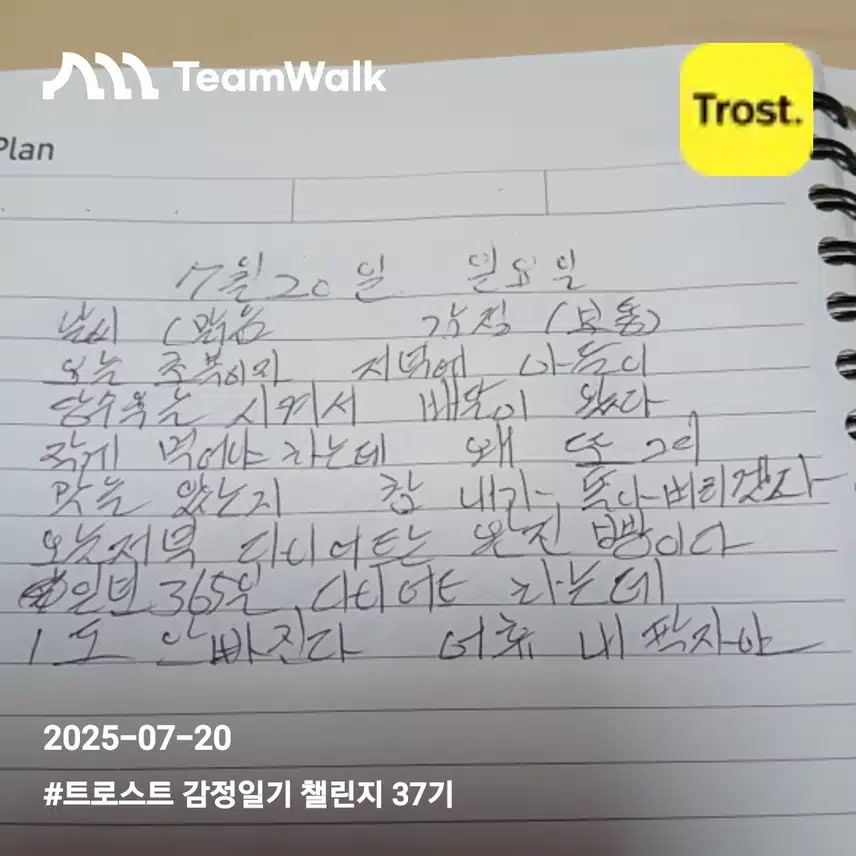 TeamWalk
Trost.
Plan
7월 20일 일요일
날씨 (맑음 감정 (보통)
오늘 초복이자 저녁에 아들이
탕수육을 시켜서 배달이 왔다
작게 먹어야 하는데 왜 또 그리
맛는 있는지 참 내가 돌아버리겠다
오늘저녁 다이어트는 완전 빵이다
일년 365일 다이어트 하는데
1도 안빠진다 어휴 내 팔자야
2025-07-20
#트로스트 감정일기 챌린지 37기